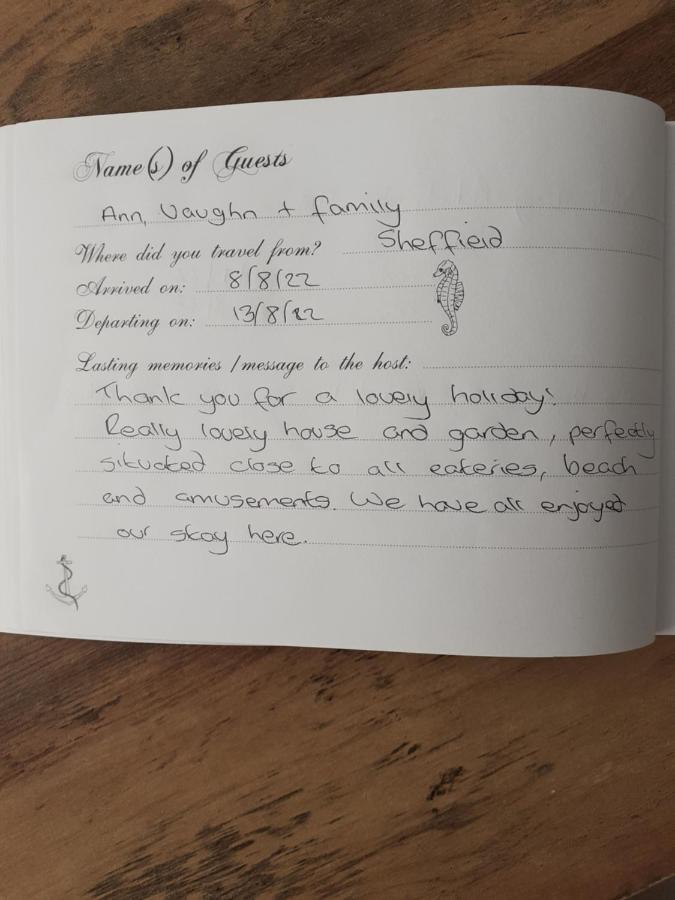 Name(s) of Guests
Ann, Vaughn + family
Where did you travel from? Sheffield
Arrived on: 8/8/22
Departing on: 13/8/22
Lasting memories / message to the host:
Thank you for a lovely holiday!
Really lovely house and garden, perfectly
situated close to all eateries, beach
and amusements. We have all enjoyed
our stay here.